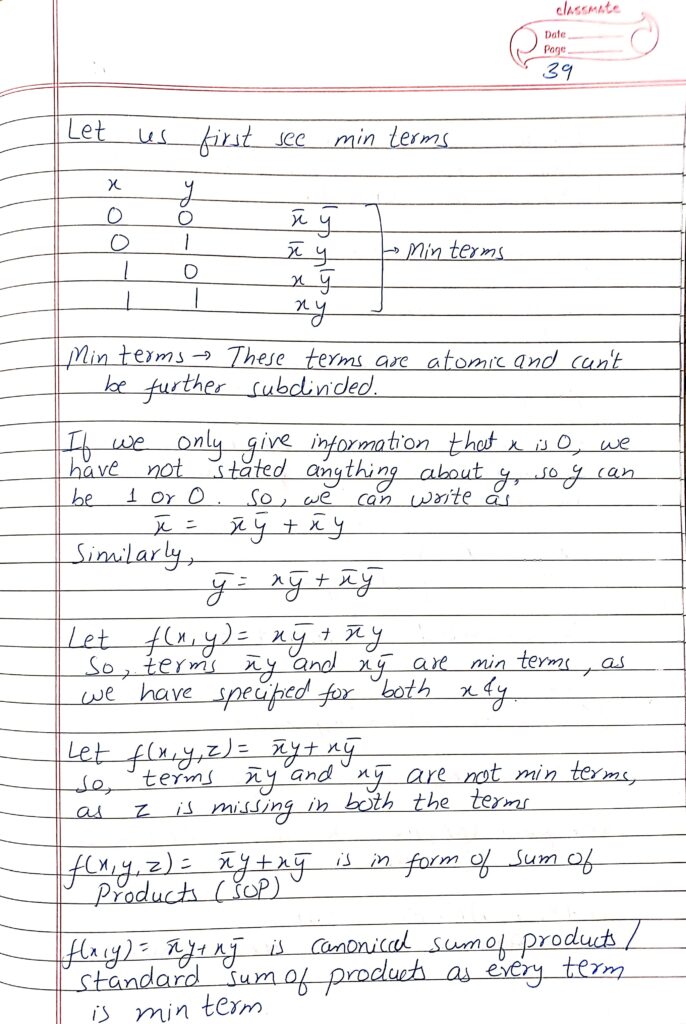 classmate
Date
Page
39
Let us first see min terms
x y
0 0 x̄ ȳ
0 1 x̄ y → Min terms
1 0 x ȳ
1 1 xy
Min terms → These terms are atomic and can't
be further subdivided.
If we only give information that x is 0, we
have not stated anything about y, so y can
be 1 or 0. So, we can write as
x̄ = x̄ȳ + x̄y
Similarly,
ȳ = xȳ + x̄ȳ
Let f(x,y) = xȳ + x̄y
So, terms x̄y and xȳ are min terms, as
we have specified for both x & y.
Let f(x,y,z) = x̄y + xȳ
so, terms x̄y and xȳ are not min terms,
as z is missing in both the terms
f(x,y,z) = x̄y + xȳ is in form of sum of
Products (SOP)
f(x,y) = x̄y + xȳ is canonical sum of products /
standard sum of products as every term
is min term